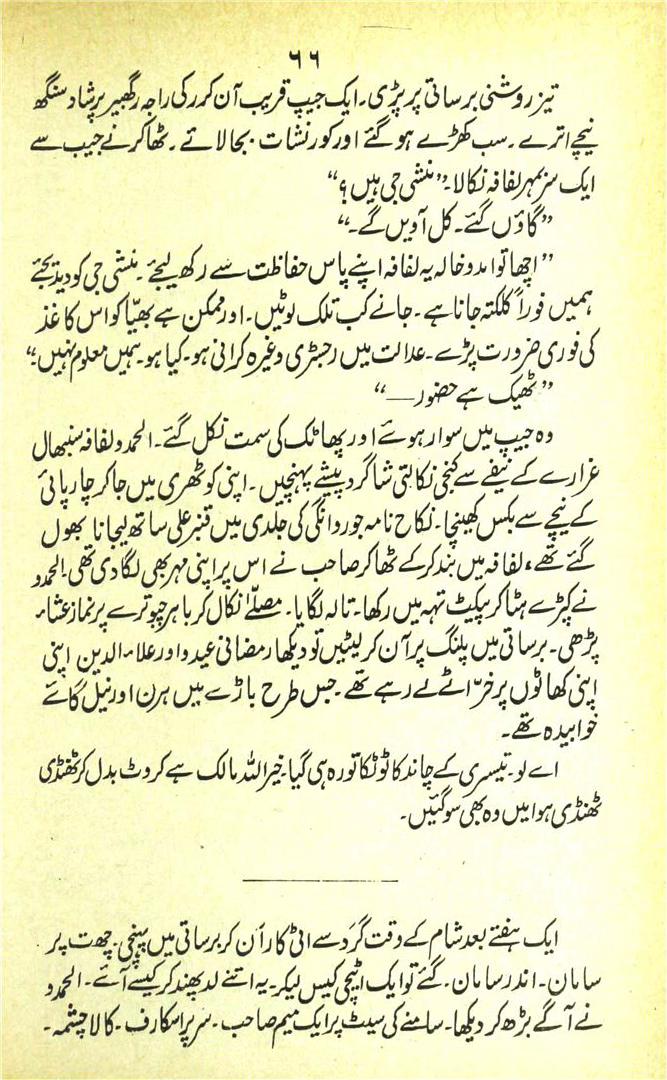 ٦٦
تیز روشنی برساتی پر پڑی۔ ایک جیپ قریب آن کر رکی راجہ رگھبیر پرشاد سنگھ
نیچے اترے۔ سب کھڑے ہو گئے اور کورنشات بجا لائے۔ ٹھاکر نے جیب سے
ایک سر بمہر لفافہ نکالا۔ "منشی جی ہیں؟"
"گاؤں گئے۔ کل آویں گے۔"
"اچھا تو امدو خالہ یہ لفافہ اپنے پاس حفاظت سے رکھ لیجئے۔ منشی جی کو دیدیجئے
ہمیں فوراً کلکتہ جانا ہے۔ جانے کب تلک لوٹیں۔ اور ممکن ہے بھیّا کو اس کاغذ
کی فوری ضرورت پڑے۔ عدالت میں رجسٹری وغیرہ کرانی ہو۔ کیا ہو۔ ہمیں معلوم نہیں۔"
"ٹھیک ہے حضور —"
وہ جیپ میں سوار ہوئے اور پھاٹک کی سمت نکل گئے۔ الحمدو لفافہ سنبھال
غرارے کے نیفے سے کنجی نکالتی شاگرد پیشے پہنچیں۔ اپنی کوٹھری میں جا کر چارپائی
کے نیچے سے بکس کھینچا۔ نکاح نامہ جو روانگی کی جلدی میں قنبر علی ساتھ لیجانا بھول
گئے تھے، لفافہ میں بند کر کے ٹھاکر صاحب نے اس پر اپنی مہر بھی لگا دی تھی۔ الحمدو
نے کپڑے ہٹا کر پیکیٹ تہہ میں رکھا۔ تالہ لگایا۔ مصلّےٰ نکال کر باہر چبوترے پر نماز عشاء
پڑھی۔ برساتی میں پلنگ پر آن کر لیٹیں تو دیکھا رمضانی عیدو اور علاء الدین اپنی
اپنی کھاٹوں پر خرّاٹے لے رہے تھے۔ جس طرح باڑے میں ہرن اور نیل گائے
خوابیدہ تھے۔
اے لو۔ تیسری کے چاند کا ٹوٹکا تو رہ ہی گیا۔ خیر اللہ مالک ہے کروٹ بدل کر ٹھنڈی
ٹھنڈی ہوا میں وہ بھی سو گئیں۔
ایک ہفتے بعد شام کے وقت گرد سے اٹی کار آن کر برساتی میں پہنچی۔ چھت پر
سامان۔ اندر سامان۔ گئے تو ایک اٹیچی کیس لیکر۔ یہ اتنے لد پھند کر کیسے آئے۔ الحمدو
نے آگے بڑھ کر دیکھا۔ سامنے کی سیٹ پر ایک میم صاحب۔ سر پر اسکارف۔ کالا چشمہ۔